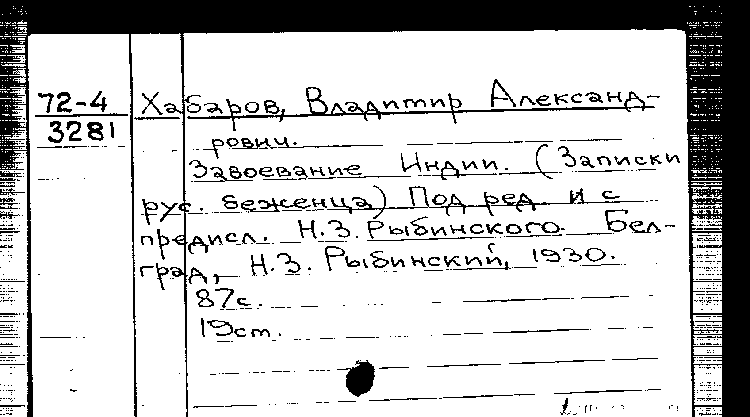 72-4
3281
Хабаров, Владимир Александ-
рович.
Завоевание Индии. (Записки
рус. беженца) Под ред. и с
предисл. Н.З. Рыбинского. Бел-
град, Н.З. Рыбинский, 1930.
87с.
19ст.